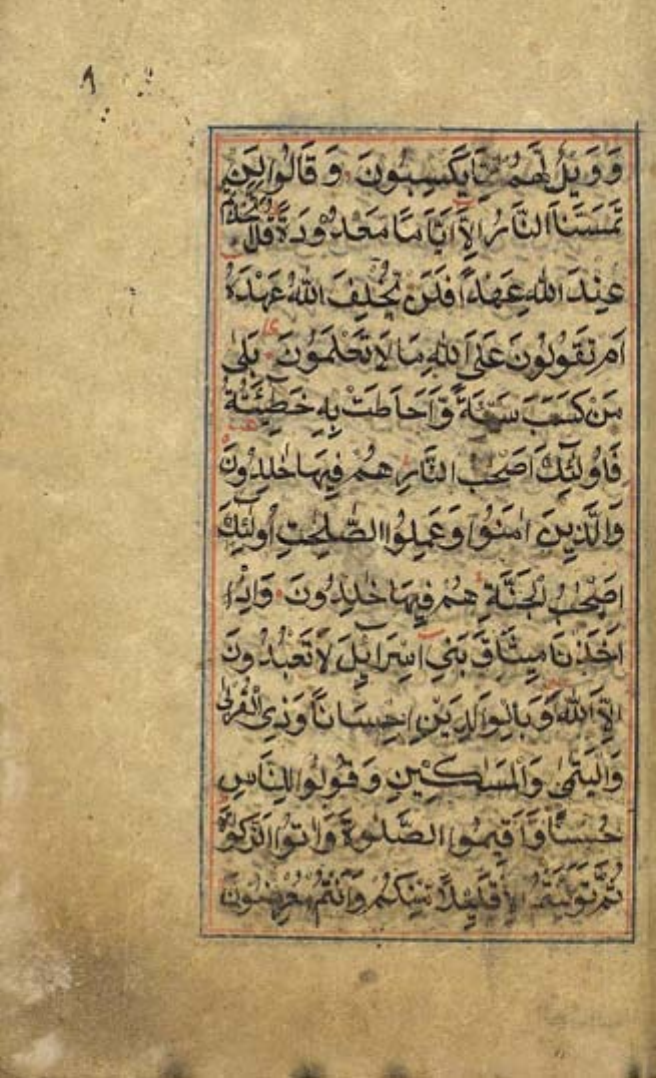 ٩
وَوَيْلٌ لَّهُمْ مِّمَّا يَكْسِبُونَ وَقَالُوا لَنْ
تَمَسَّنَا النَّارُ اِلَّا اَيَّامًا مَّعْدُوْدَةً قُلْ اَتَّخَذْتُمْ
عِنْدَ اللّٰهِ عَهْدًا فَلَنْ يُّخْلِفَ اللّٰهُ عَهْدَهٗ
اَمْ تَقُوْلُوْنَ عَلَى اللّٰهِ مَا لَا تَعْلَمُوْنَ بَلٰى
مَنْ كَسَبَ سَيِّئَةً وَّاَحَاطَتْ بِهٖ خَطِيْئَتُهٗ
فَاُولٰٓئِكَ اَصْحٰبُ النَّارِ هُمْ فِيْهَا خٰلِدُوْنَ
وَالَّذِيْنَ اٰمَنُوْا وَعَمِلُوا الصّٰلِحٰتِ اُولٰٓئِكَ
اَصْحٰبُ الْجَنَّةِ هُمْ فِيْهَا خٰلِدُوْنَ وَاِذْ
اَخَذْنَا مِيْثَاقَ بَنِيْٓ اِسْرَآئِيْلَ لَا تَعْبُدُوْنَ
اِلَّا اللّٰهَ وَبِالْوَالِدَيْنِ اِحْسَانًا وَّذِي الْقُرْبٰى
وَالْيَتٰمٰى وَالْمَسٰكِيْنِ وَقُوْلُوْا لِلنَّاسِ
حُسْنًا وَّاَقِيْمُوا الصَّلٰوةَ وَاٰتُوا الزَّكٰوةَ
ثُمَّ تَوَلَّيْتُمْ اِلَّا قَلِيْلًا مِّنْكُمْ وَاَنْتُمْ مُّعْرِضُوْنَ